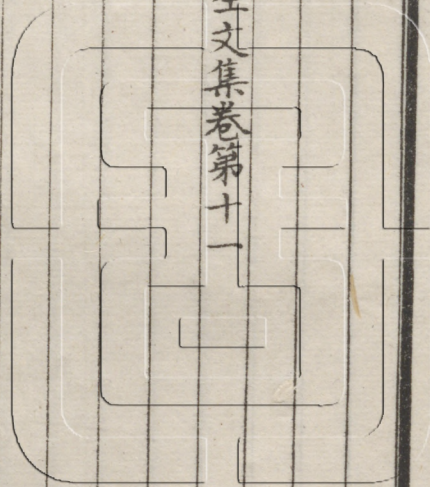 文集卷第十一